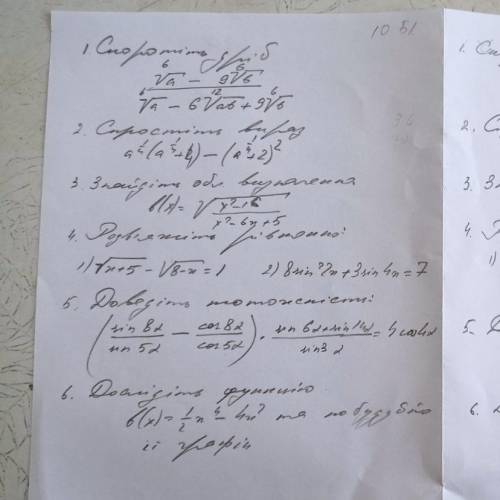 10 Б1
1. Скоротіть дріб
\frac{\sqrt[6]{a} - 9\sqrt[6]{b}}{\sqrt[6]{a} - 6\sqrt[12]{ab} + 9\sqrt[6]{b}}
2. Спростіть вираз
a^{\frac{1}{4}}(a^{\frac{1}{4}}+4) - (a^{\frac{1}{4}}+2)^2
3. Знайдіть обл. визначення
f(x) = \sqrt{\frac{x^2-16}{x^2-6x+5}}
4. Розв'яжіть рівняння:
1) \sqrt{x+5} - \sqrt{8-x} = 1 2) 8sin^2 2x + 3sin 4x = 7
5. Доведіть тотожність:
(\frac{sin 8α}{sin 5α} - \frac{cos 8α}{cos 5α}) · \frac{sin 6α + sin 14α}{sin 3α} = 4cos 4α
6. Дослідіть функцію
f(x) = \frac{1}{2}x^4 - 4x^2 та побудуйте
її графік
1.
2.
3. З
4.
1)
5.
6.